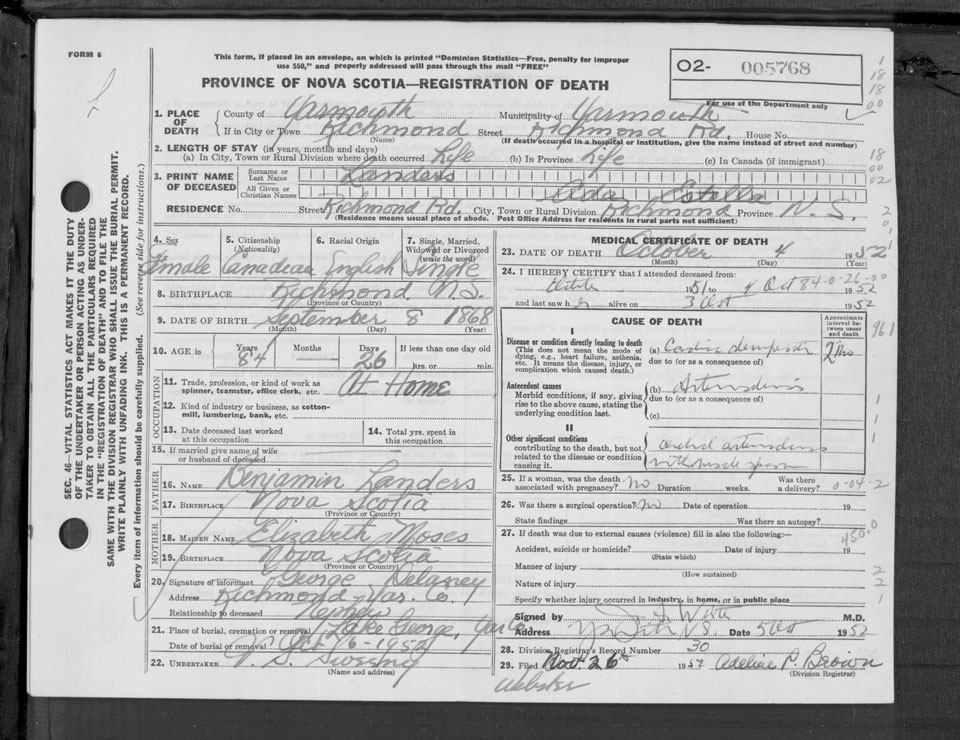 FORM 6
This form, if placed in an envelope, on which is printed "Dominion Statistics—Free, penalty for improper
use $50," and properly addressed will pass through the mail "FREE"
PROVINCE OF NOVA SCOTIA—REGISTRATION OF DEATH
O2- 005768
For use of the Department only
1. PLACE OF DEATH
County of Yarmouth Municipality of Yarmouth
If in City or Town Richmond Street Richmond Rd. House No.
(Name) (If death occurred in a hospital or institution, give the name instead of street and number)
2. LENGTH OF STAY (in years, months and days)
(a) In City, Town or Rural Division where death occurred Life (b) In Province Life (c) In Canada (if immigrant)
3. PRINT NAME OF DECEASED
Surname or Last Name Landers
All Given or Christian Names Ada Estella
RESIDENCE No. Street Richmond Rd. City, Town or Rural Division Richmond Province N.S.
(Residence means usual place of abode. Post Office Address for residents in rural parts not sufficient)
4. Sex Female
5. Citizenship (Nationality) Canadian
6. Racial Origin English
7. Single, Married, Widowed or Divorced (write the word) Single
8. BIRTHPLACE Richmond N.S.
(Province or Country)
9. DATE OF BIRTH September 8 1868
(Month) (Day) (Year)
10. AGE in Years 84 Months — Days 26 If less than one day old
hrs. or min.
OCCUPATION
11. Trade, profession, or kind of work as
spinner, teamster, office clerk, etc. At Home
12. Kind of industry or business, as cotton-
mill, lumbering, bank, etc.
13. Date deceased last worked
at this occupation
14. Total yrs. spent in
this occupation
15. If married give name of wife
or husband of deceased
FATHER
16. NAME Benjamin Landers
17. BIRTHPLACE Nova Scotia
(Province or Country)
MOTHER
18. MAIDEN NAME Elizabeth Moses
19. BIRTHPLACE Nova Scotia
(Province or Country)
20. Signature of informant George Delaney
Address Richmond Yar. Co.
Relationship to deceased
21. Place of burial, cremation or removal Lake George, Yar Co.
Date of burial or removal Oct 6-1952
22. UNDERTAKER S. Sweeney
(Name and address)
MEDICAL CERTIFICATE OF DEATH
23. DATE OF DEATH October 4 1952
(Month) (Day) (Year)
24. I HEREBY CERTIFY that I attended deceased from:
1951 to 4 Oct 1952
84-0-26-00
and last saw her alive on 3 Oct 1952
CAUSE OF DEATH
Approximate interval between onset and death
I
Disease or condition directly leading to death
(This does not mean the mode of
dying, e.g., heart failure, asthenia,
etc. It means the disease, injury, or
complication which caused death.)
(a) Cardiac
due to (or as a consequence of)
Antecedent causes
Morbid conditions, if any, giving
rise to the above cause, stating the
underlying condition last.
(b)
due to (or as a consequence of)
(c)
II
Other significant conditions
contributing to the death, but not
related to the disease or condition
causing it.
25. If a woman, was the death
associated with pregnancy? No Duration weeks. Was there
a delivery? 0-04-2
26. Was there a surgical operation? No Date of operation 19
State findings Was there an autopsy?
27. If death was due to external causes (violence) fill in also the following:—
Accident, suicide or homicide? Date of injury 19
(State which)
Manner of injury
(How sustained)
Nature of injury
Specify whether injury occurred in industry, in home, or in public place
Signed by M.D.
Address N.S. Date 5 Oct 1952
28. Division Registrar's Record Number 30
29. Filed Nov. 26th 1952 Adeline P. Brown
(Division Registrar)
Webster
1
18
18
00
18
00
02
961
450.0
SEC. 46—VITAL STATISTICS ACT MAKES IT THE DUTY
OF THE UNDERTAKER OR PERSON ACTING AS UNDER-
TAKER TO OBTAIN ALL THE PARTICULARS REQUIRED
IN THE "REGISTRATION OF DEATH" AND TO FILE THE
SAME WITH THE DIVISION REGISTRAR WHO SHALL ISSUE THE BURIAL PERMIT.
WRITE PLAINLY WITH UNFADING INK. THIS IS A PERMANENT RECORD.
Every item of information should be carefully supplied. (See reverse side for instructions.)